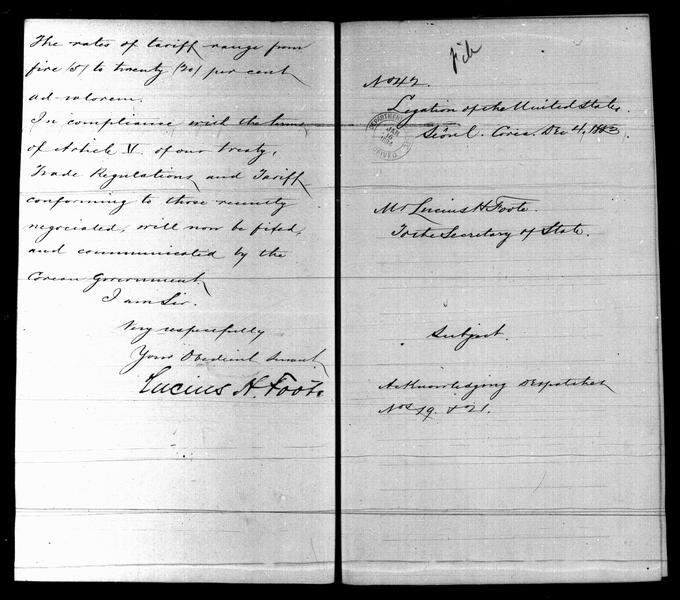 The rates of tariff range from
five (5) to twenty (20) per cent
ad-valorem.
In compliance with the terms
of Article V. of our treaty,
Trade Regulations and Tariff
conforming to those recently
negociated, will now be fixed,
and communicated by the
Corean Government.
I am Sir.
Very respectfully
Your Obedient Servant
Lucius H. Foote
File
No 42.
Legation of the United States.
Seoul. Corea. Dec 4, 1883
DEPARTMENT
JAN
RECEIVED
Mr Lucius H Foote.
To the Secretary of State.
Subject.
Acknowledging Despatches
Nos 19. & 21.